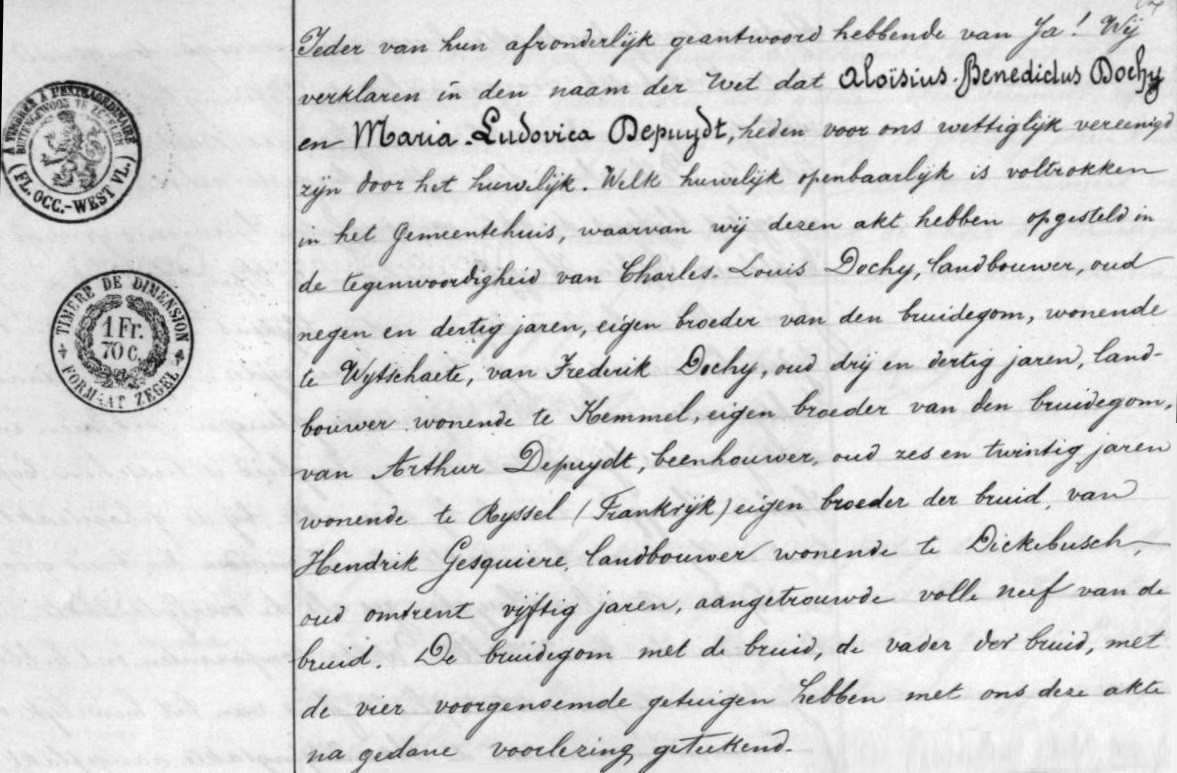 Ieder van hun afzonderlijk geantwoord hebbende van Ja! Wij
verklaren in den naam der Wet dat Aloïsius-Benedictus Dochy
en Maria-Ludovica Depuydt, heden voor ons wettiglijk vereenigd
zijn door het huwelijk. Welk huwelijk openbaarlijk is voltrokken
in het Gemeentehuis, waarvan wij dezen akt hebben opgesteld in
de tegenwoordigheid van Charles-Louis Dochy, landbouwer, oud
negen en dertig jaren, eigen broeder van den bruidegom, wonende
te Wytschaete, van Frederik Dochy, oud drij en dertig jaren, land-
bouwer wonende te Kemmel, eigen broeder van den bruidegom,
van Arthur Depuydt, beenhouwer, oud zes en twintig jaren
wonende te Ryssel (Frankrijk) eigen broeder der bruid, van
Hendrik Gesquiere, landbouwer wonende te Dickebusch,
oud omtrent vijftig jaren, aangetrouwde volle neef van de
bruid. De bruidegom met de bruid, de vader der bruid, met
de vier voorgenoemde getuigen hebben met ons deze akte
na gedane voorlezing geteekend.
(FL. OCC.-WEST VL.)
TIMBRE DE DIMENSION
1 Fr.
70 c.
FORMAAT ZEGEL